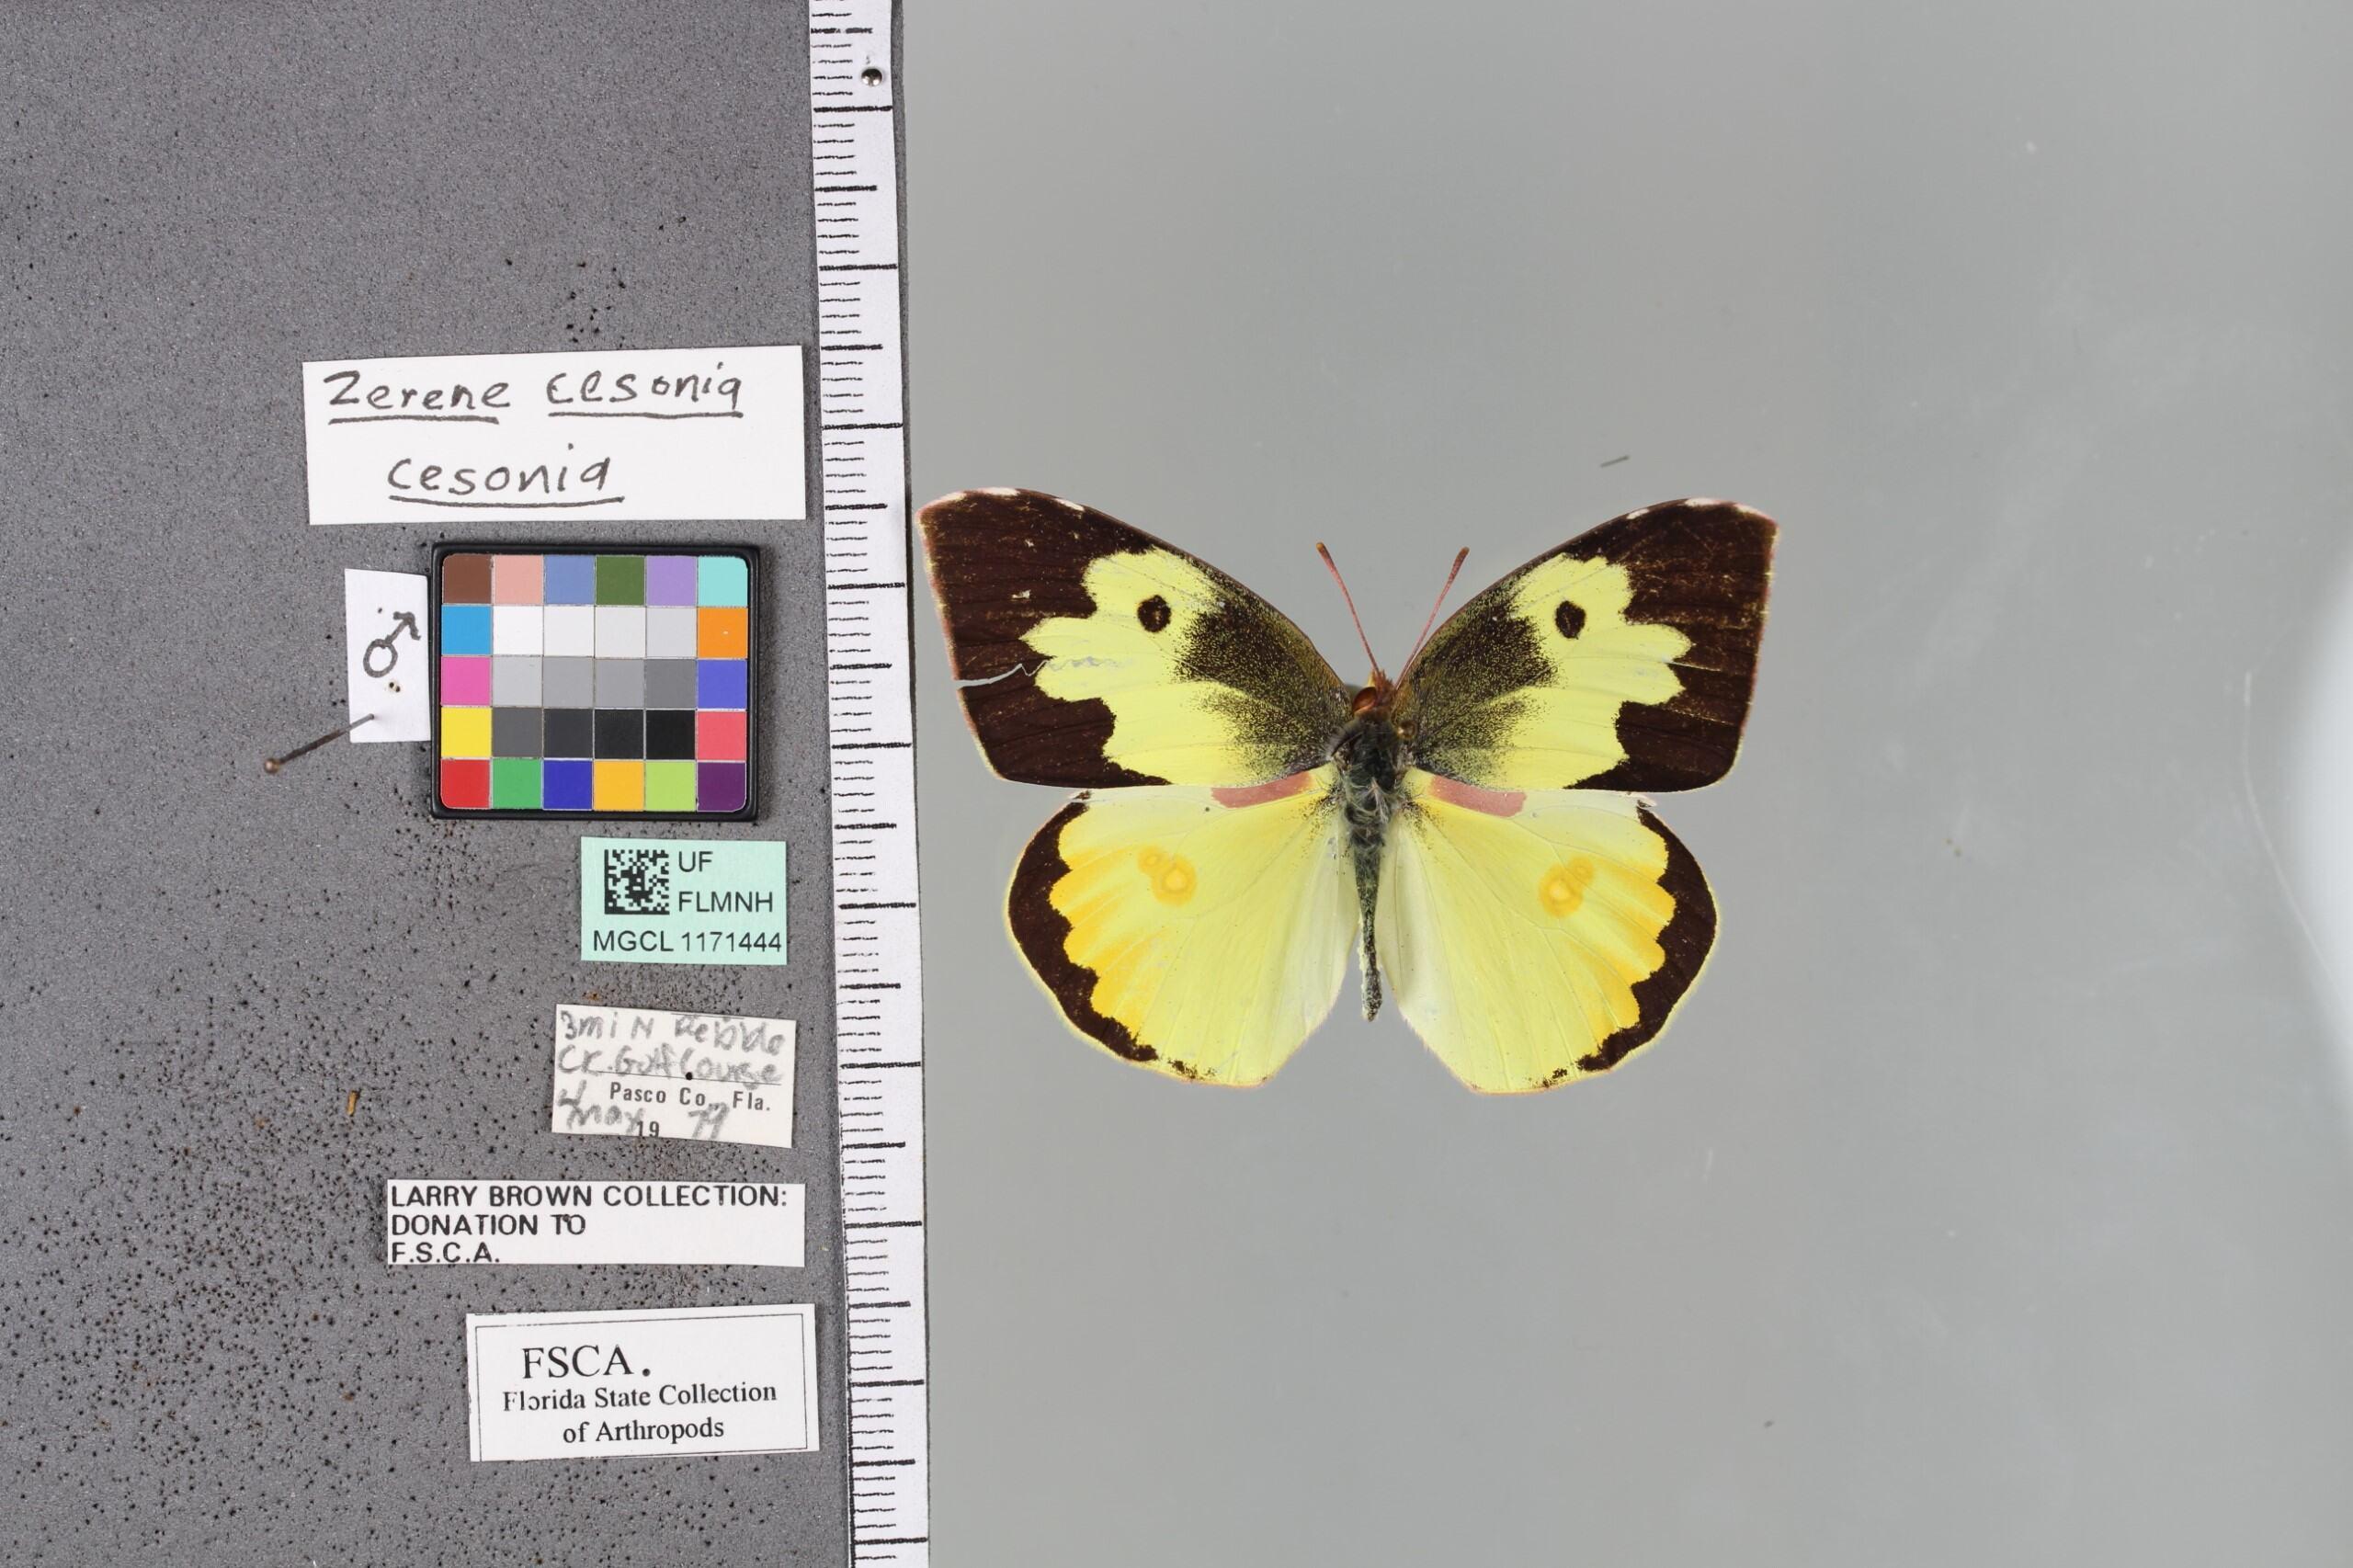 Zerene cesonia
cesonia
♂
UF
FLMNH
MGCL 1171444
3mi N Pebble
CK. Golf Course
Pasco Co., Fla.
4 may 19 79
LARRY BROWN COLLECTION:
DONATION TO
F.S.C.A.
FSCA.
Florida State Collection
of Arthropods